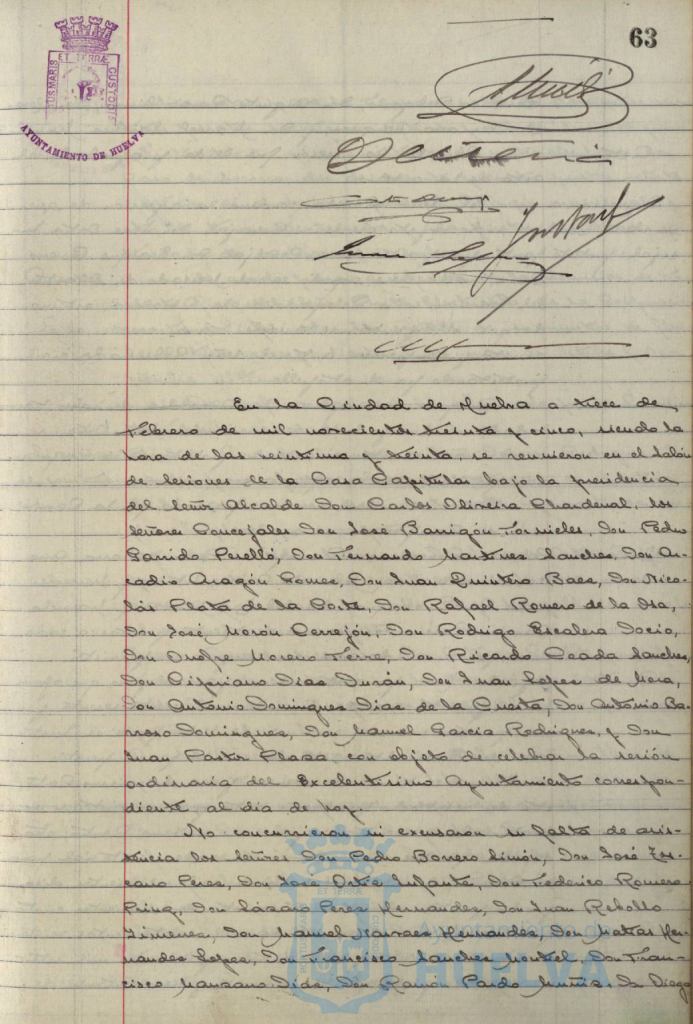 63
PORTUS MARIS ET TERRÆ CUSTODIA
AYUNTAMIENTO DE HUELVA
En la Ciudad de Huelva a trece de
Febrero de mil novecientos treinta y cinco, siendo la
hora de las veintiuna y treinta, se reunieron en el Salón
de Sesiones de la Casa Capitular bajo la presidencia
del Señor Alcalde Don Carlos Oliveira Chardenal, los
Señores Concejales Don José Barrigón Fornieles, Don Pedro
Garrido Perelló, Don Fernando Martinez Sanchez, Don Ar-
cadio Aragón Gomez, Don Juan Quintero Baez, Don Nico-
lás Plata de la Corte, Don Rafael Romero de la Osa,
Don José Morón Cerrejón, Don Rodrigo Escalera Socio,
Don Onofre Moreno Ferre, Don Ricardo Ceada Sanchez,
Don Cipriano Dias Durán, Don Juan Lopez de Mora,
Don Antonio Dominguez Dias de la Cuesta, Don Antonio Ba-
rroso Dominguez, Don Manuel Garcia Rodriguez, y Don
Juan Pastor Plaza con objeto de celebrar la sesión
ordinaria del Excelentisimo Ayuntamiento correspon-
diente al dia de hoy.
No concurrieron ni excusaron su falta de asis-
tencia los Señores Don Pedro Borrero Limón, Don José Toscano
Perez, Don José Ortiz Infante, Don Federico Romero
Don Lázaro Perez Hernandez, Don Juan Rebollo
Jimenez, Don Manuel Narvaez Hernandez, Don Matias Her-
nandez Lopez, Don Francisco Sanchez Montiel, Don Fran-
cisco Manzano Dias, Don Ramón Pardo Muñiz, Dn Diego
HUELVA